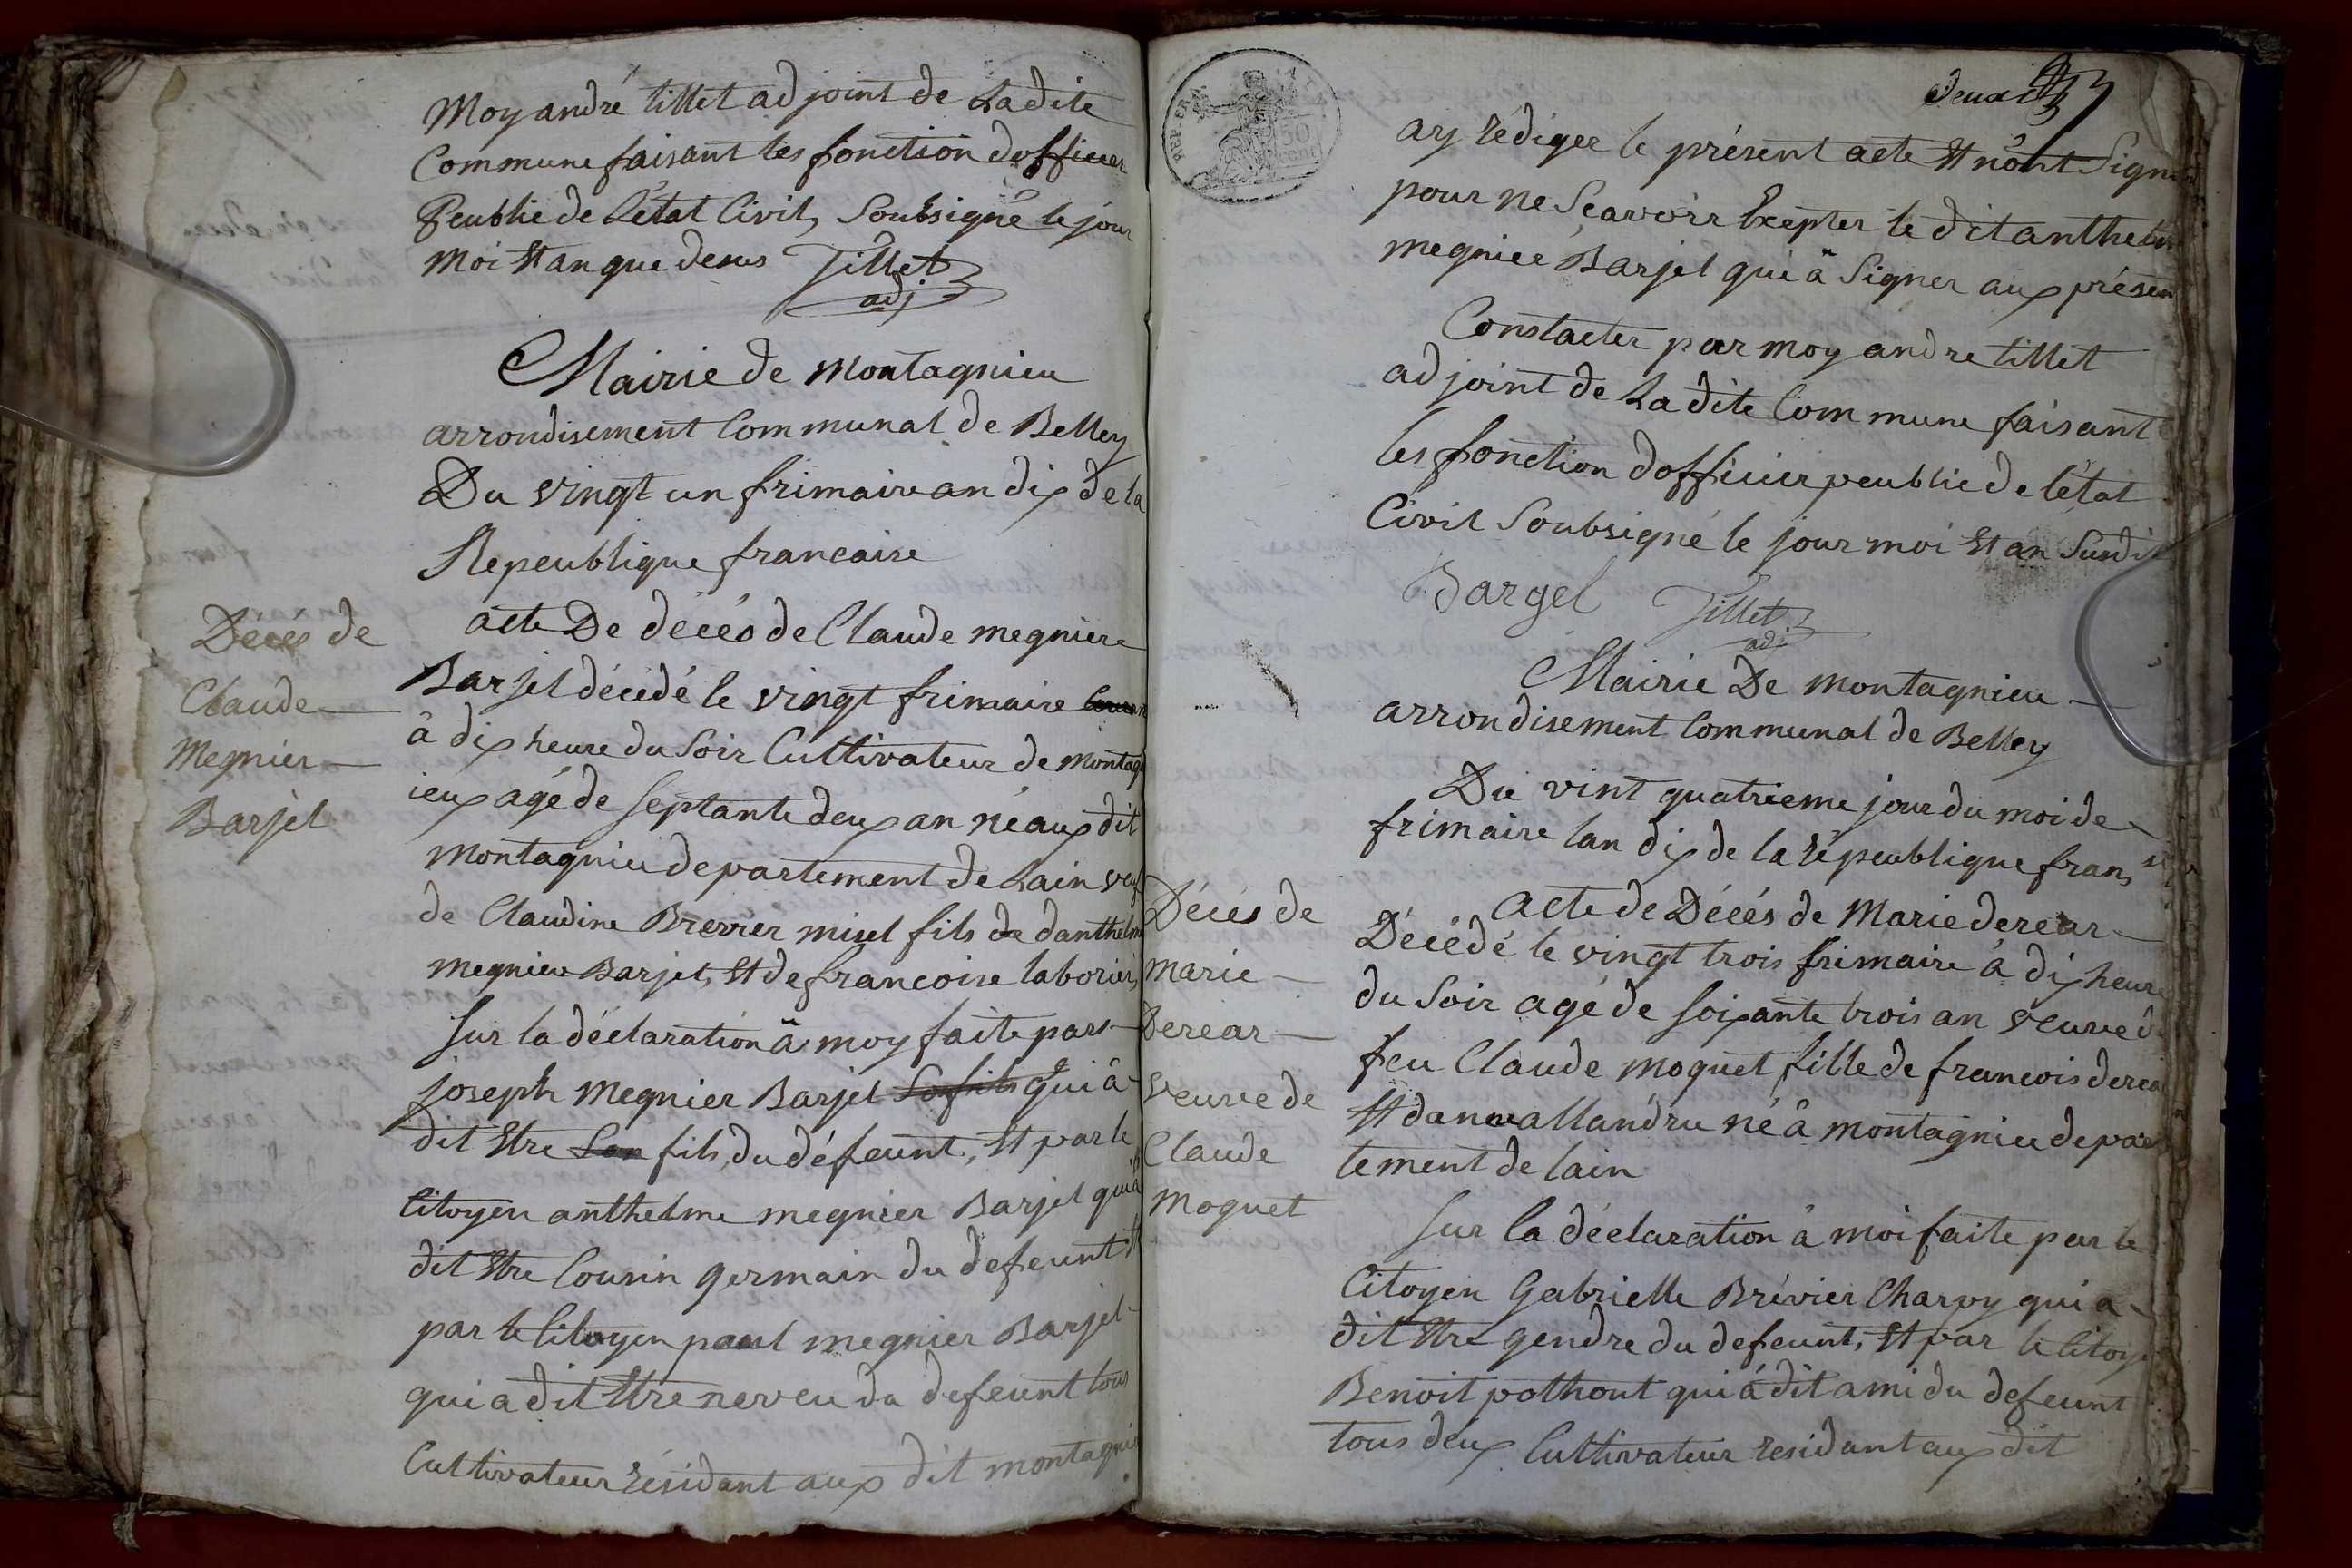 Moy andré tillet adjoint de Ladite
Commune faisant les fonction dofficier
Peublic de Létat Civil, Soubsigné le jour
Moi Et an que desus Tillet
adj
Mairie de Montagnieu
arrondisement Communal de Belley
Du vingt un frimaire an dix de la
Repeublique francaise
Déces de
Claude
Megnier
Barjel
acte De décés de Claude megniere
Barjel décédé le vingt frimaire
à dix heure du Soir Cultivateur de montagn
ieux agé de Septante deux an né aux dit
Montagnieu departement de Lain veuf
de Claudine Brevier misel fils de danthelme
megnier Barjel, Et de francoise laborier,
Sur la déclaration à moy faite par
joseph Megnier Barjel Sofils qui à
dit Etre Son fils, du défeunt, Et par le
Citoyen anthelme megnier Barjel qui à
dit Etre Cousin germain du defeunt Et
par le Citoyen paul megnier Barjel
qui a dit Etre neveu du defeunt tous
Cultivateur résidant aux dit montagnie
REP. FRA.
50
cent
Deux
ay rédigee le présent acte Et n'ont Signé
pour ne Scavoir Exepter le dit anthelm
megnier Barjel qui à Signer aux présen
Constacter par moy andre tillet
adjoint de Ladite Commune faisant
les fonction dofficier peublic de létat
Civil Soubsigné le jour moi Et an Susdit
Bargel Tillet
adj
Mairie De Montagnieu
arrondisement Communal de Belley
Du vint quatrieme jour du moi de
frimaire lan dix de la répeublique frans se
Décés de
Marie
Derear
Veuve de
Claude
Moquet
acte de Décés de Marie derear
Décédé le vingt trois frimaire à dix heure
du Soir agé de Soixante trois an veuve d
feu Claude moquet fille de francois derea
Et danne allandru né à montagnieu depar
tement de lain
Sur la déclaration à moi faite par le
Citoyen Gabrielle Brévier Charvy qui a
dit Etre gendre du defeunt, Et par le Citoy
Benoit pothout qui à dit ami du defeunt
tous deux Cultivateur residant aux dit